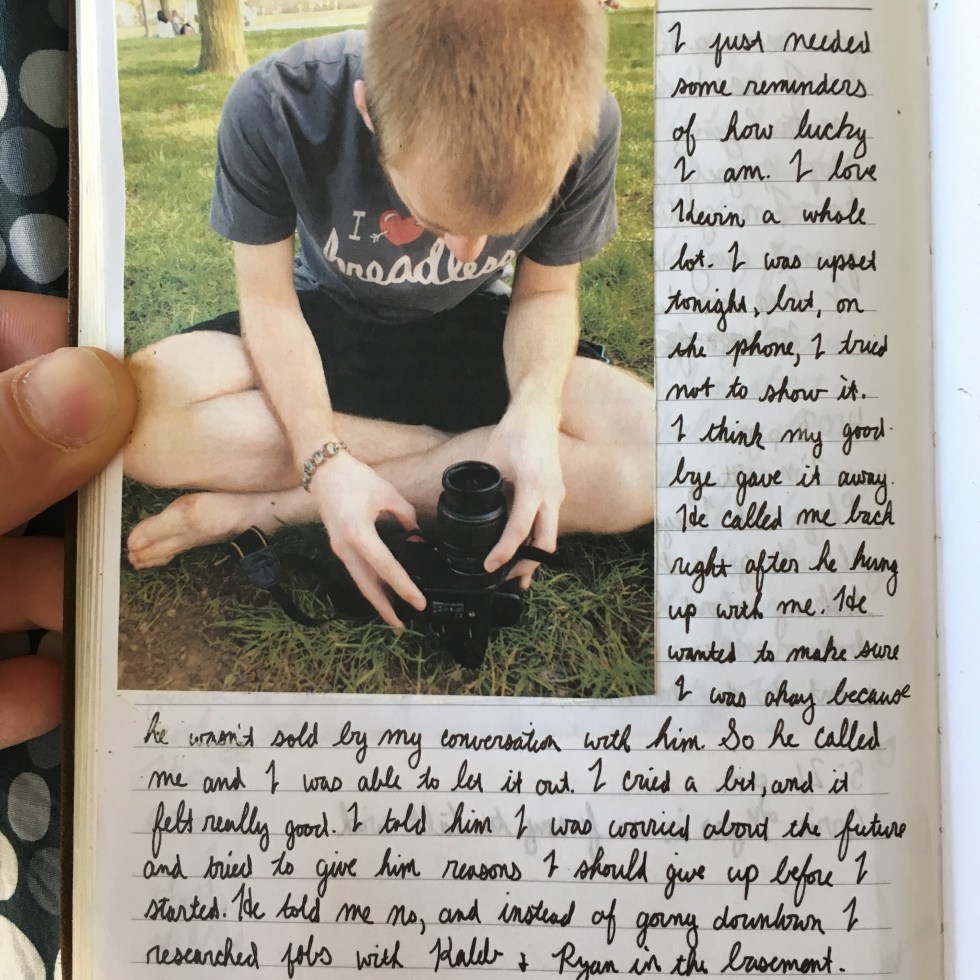 I ❤ threadless
I just needed
some reminders
of how lucky
I am. I love
Kevin a whole
lot. I was upset
tonight, but, on
the phone, I tried
not to show it.
I think my good-
bye gave it away.
He called me back
right after he hung
up with me. He
wanted to make sure
I was okay because
he wasn't sold by my conversation with him. So he called
me and I was able to let it out. I cried a bit, and it
felt really good. I told him I was worried about the future
and tried to give him reasons I should give up before I
started. He told me no, and instead of going downtown I
researched jobs with Kaleb & Ryan in the basement.